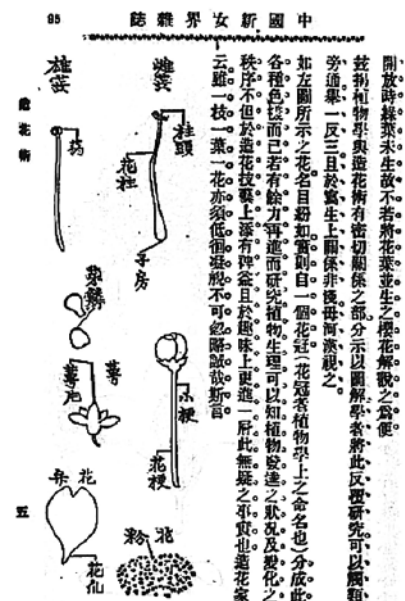 中國新女界雜誌
95
開放時綠葉未生故不若將花葉並生之櫻花解覩之爲便
茲揭植物學與造花術有密切關係之部分示以圖解學者將此反覆研究可以觸類
旁通舉一反三且於寫生上關係非淺毋河漢視之
如左圖所示之花名目紛如實則自一個花冠(花冠者植物學上之命名也)分成此
各種色樣而已若有餘力再進而研究植物生理可以知植物發達之狀况及變化之
秩序不但於造花技藝上添有裨益且於趣味上更進一層此無疑之事實也造花家
云雖一枝一葉一花亦須低徊凝視不可忽略誠哉斯言
雌蕊
柱頭
花柱
子房
雄蕊
葯
小梗
花梗
萼
萼片
花粉
花朵
五